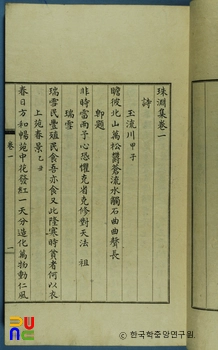 珠淵集卷一
詩
玉流川 甲子
瞻彼北山萬松鬱蒼流水觸石曲曲聲長
卽題
非時雷雨予心恐懼克省克修對天法 祖
瑞雪
瑞雪民豊殖民食吾亦食又此隆寒時貧者何以衣
上苑春景 乙丑
春日方和暢苑中花發紅一天分造化萬物動仁風
卷一
一
© 한국학중앙연구원